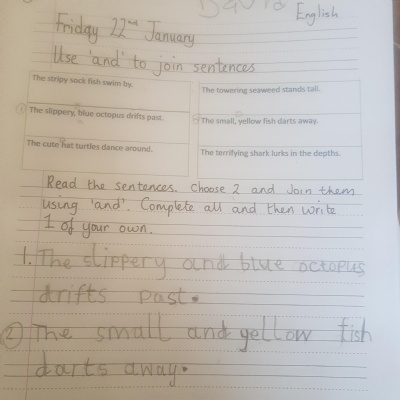 David
English
Friday 22nd January
Use 'and' to join sentences
The stripy sock fish swim by.
The towering seaweed stands tall.
1 The slippery, blue octopus drifts past.
The small, yellow fish darts away.
The cute hat turtles dance around.
The terrifying shark lurks in the depths.
Read the sentences. Choose 2 and Join them
using 'and'. Complete all and then write
1 of your own.
1. The slippery and blue octopus
drifts past.
2 The small and yellow fish
darts away.